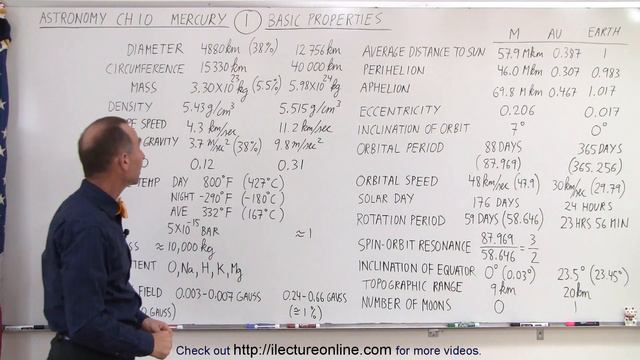 ASTRONOMY CH 10 MERCURY ① BASIC PROPERTIES
M AU EARTH
DIAMETER 4880 km (38%) 12 756 km
CIRCUMFERENCE 15 330 km 40 000 km
MASS 3.30×10²³ kg (5.5%) 5.98×10²⁴ kg
DENSITY 5.43 g/cm³ 5.515 g/cm³
SPEED 4.3 km/sec 11.2 km/sec
GRAVITY 3.7 m/sec² (38%) 9.8 m/sec²
0.12 0.31
TEMP DAY 800°F (427°C)
NIGHT -290°F (-180°C)
AVE 332°F (167°C)
5×10⁻¹⁵ BAR ≈ 1
≈ 10,000 kg
O, Na, H, K, Mg
FIELD 0.003-0.007 GAUSS 0.24-0.66 GAUSS
(≈ 1%)
AVERAGE DISTANCE TO SUN 57.9 Mkm 0.387 1
PERIHELION 46.0 Mkm 0.307 0.983
APHELION 69.8 Mkm 0.467 1.017
ECCENTRICITY 0.206 0.017
INCLINATION OF ORBIT 7° 0°
ORBITAL PERIOD 88 DAYS 365 DAYS
(87.969) (365.256)
ORBITAL SPEED 48 km/sec (47.9) 30 km/sec (29.79)
SOLAR DAY 176 DAYS 24 HOURS
ROTATION PERIOD 59 DAYS (58.646) 23 HRS 56 MIN
SPIN-ORBIT RESONANCE 87.969/58.646 = 3/2
INCLINATION OF EQUATOR 0° (0.03°) 23.5° (23.45°)
TOPOGRAPHIC RANGE 9 km 20 km
NUMBER OF MOONS 0 1
Check out http://ilectureonline.com for more videos.